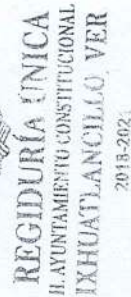 REGIDURÍA ÚNICA
H. AYUNTAMIENTO CONSTITUCIONAL
IXHUATLANCILLO VER
2018-202